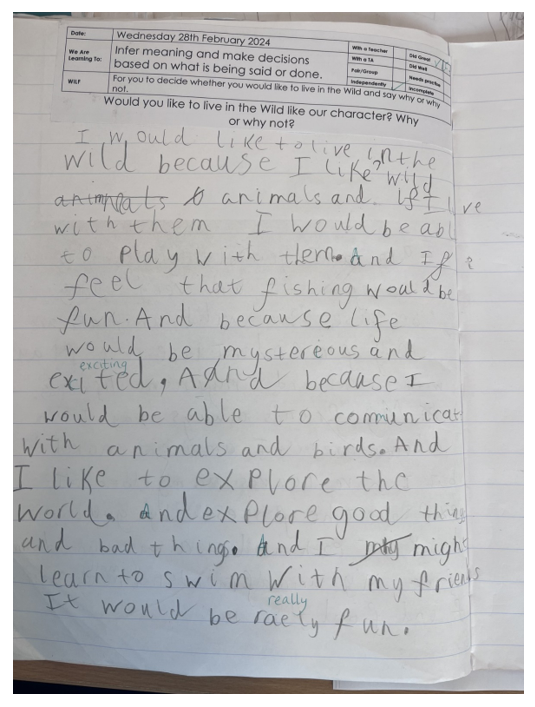 Date: Wednesday 28th February 2024
We Are Learning To: Infer meaning and make decisions based on what is being said or done.
With a Teacher Did Great
With a TA Did Well
Pair/Group Needs practice
Independently Incomplete
WILF For you to decide whether you would like to live in the Wild and say why or why not.
Would you like to live in the Wild like our character? Why or why not?
I would like to live in the
wild because I like wild
animals animals and if I live
with them I would be abl
to play with them. And I
feel that fishing would be
fun. And because life
would be mystereous and
exciting
exited, And because I
would be able to comunicat
with animals and birds. And
I like to explore the
world. And explore good thing
and bad things. And I might
learn to swim with my friends
really
It would be raely fun.